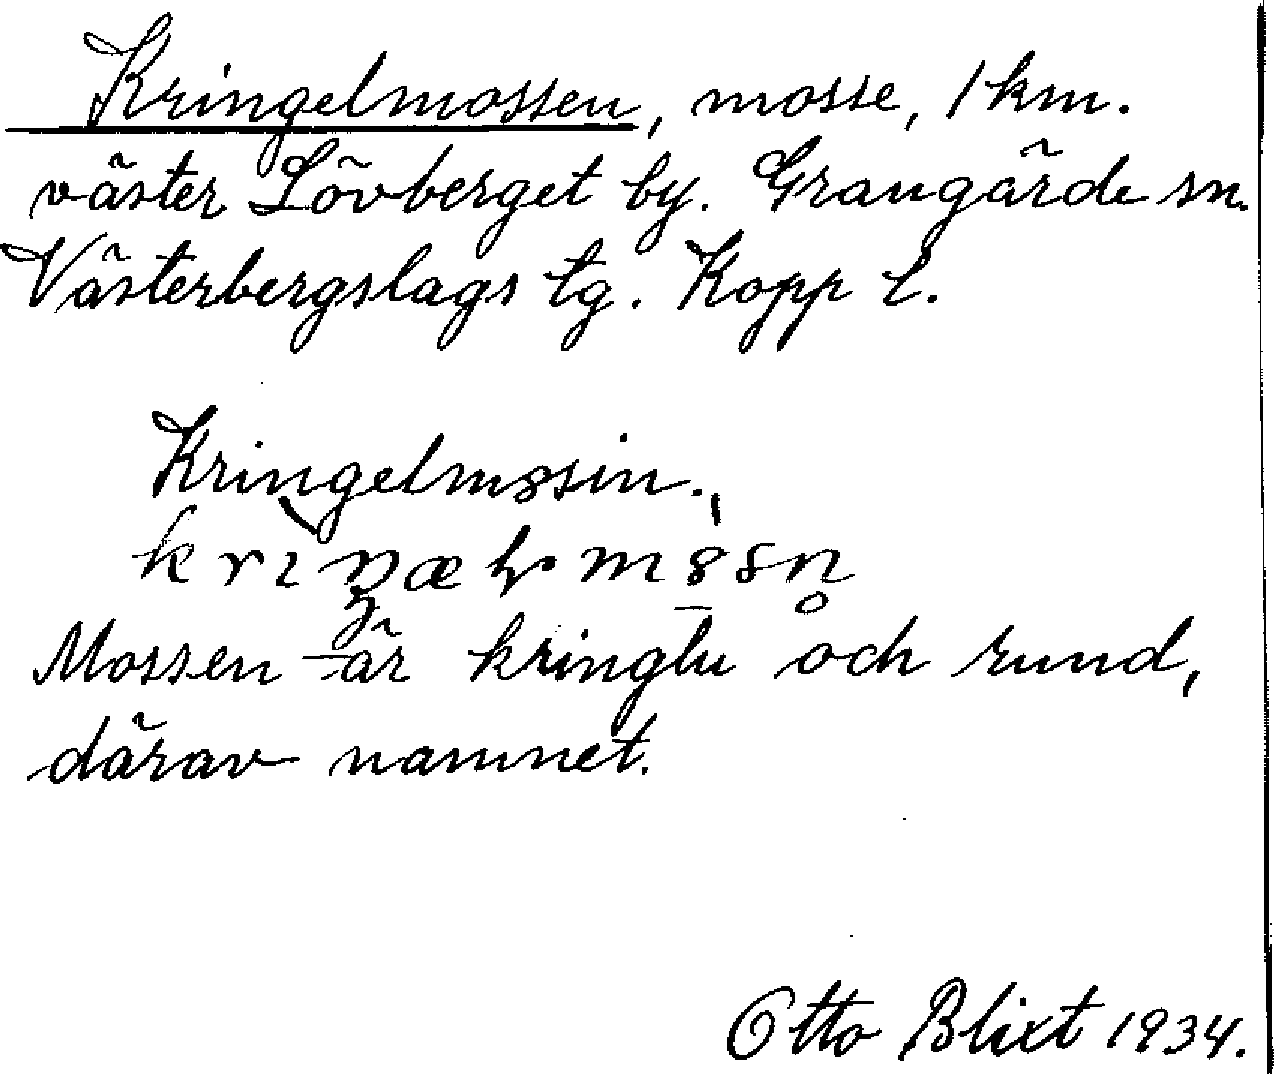 Kringelmossen, mosse, 1 km.
väster Lövberget by. Grangärde sn.
Västerbergslags tg. Kopp l.
Kringelmssin.
Mossen är kringlu och rund,
därav namnet.
Otto Blixt 1934.